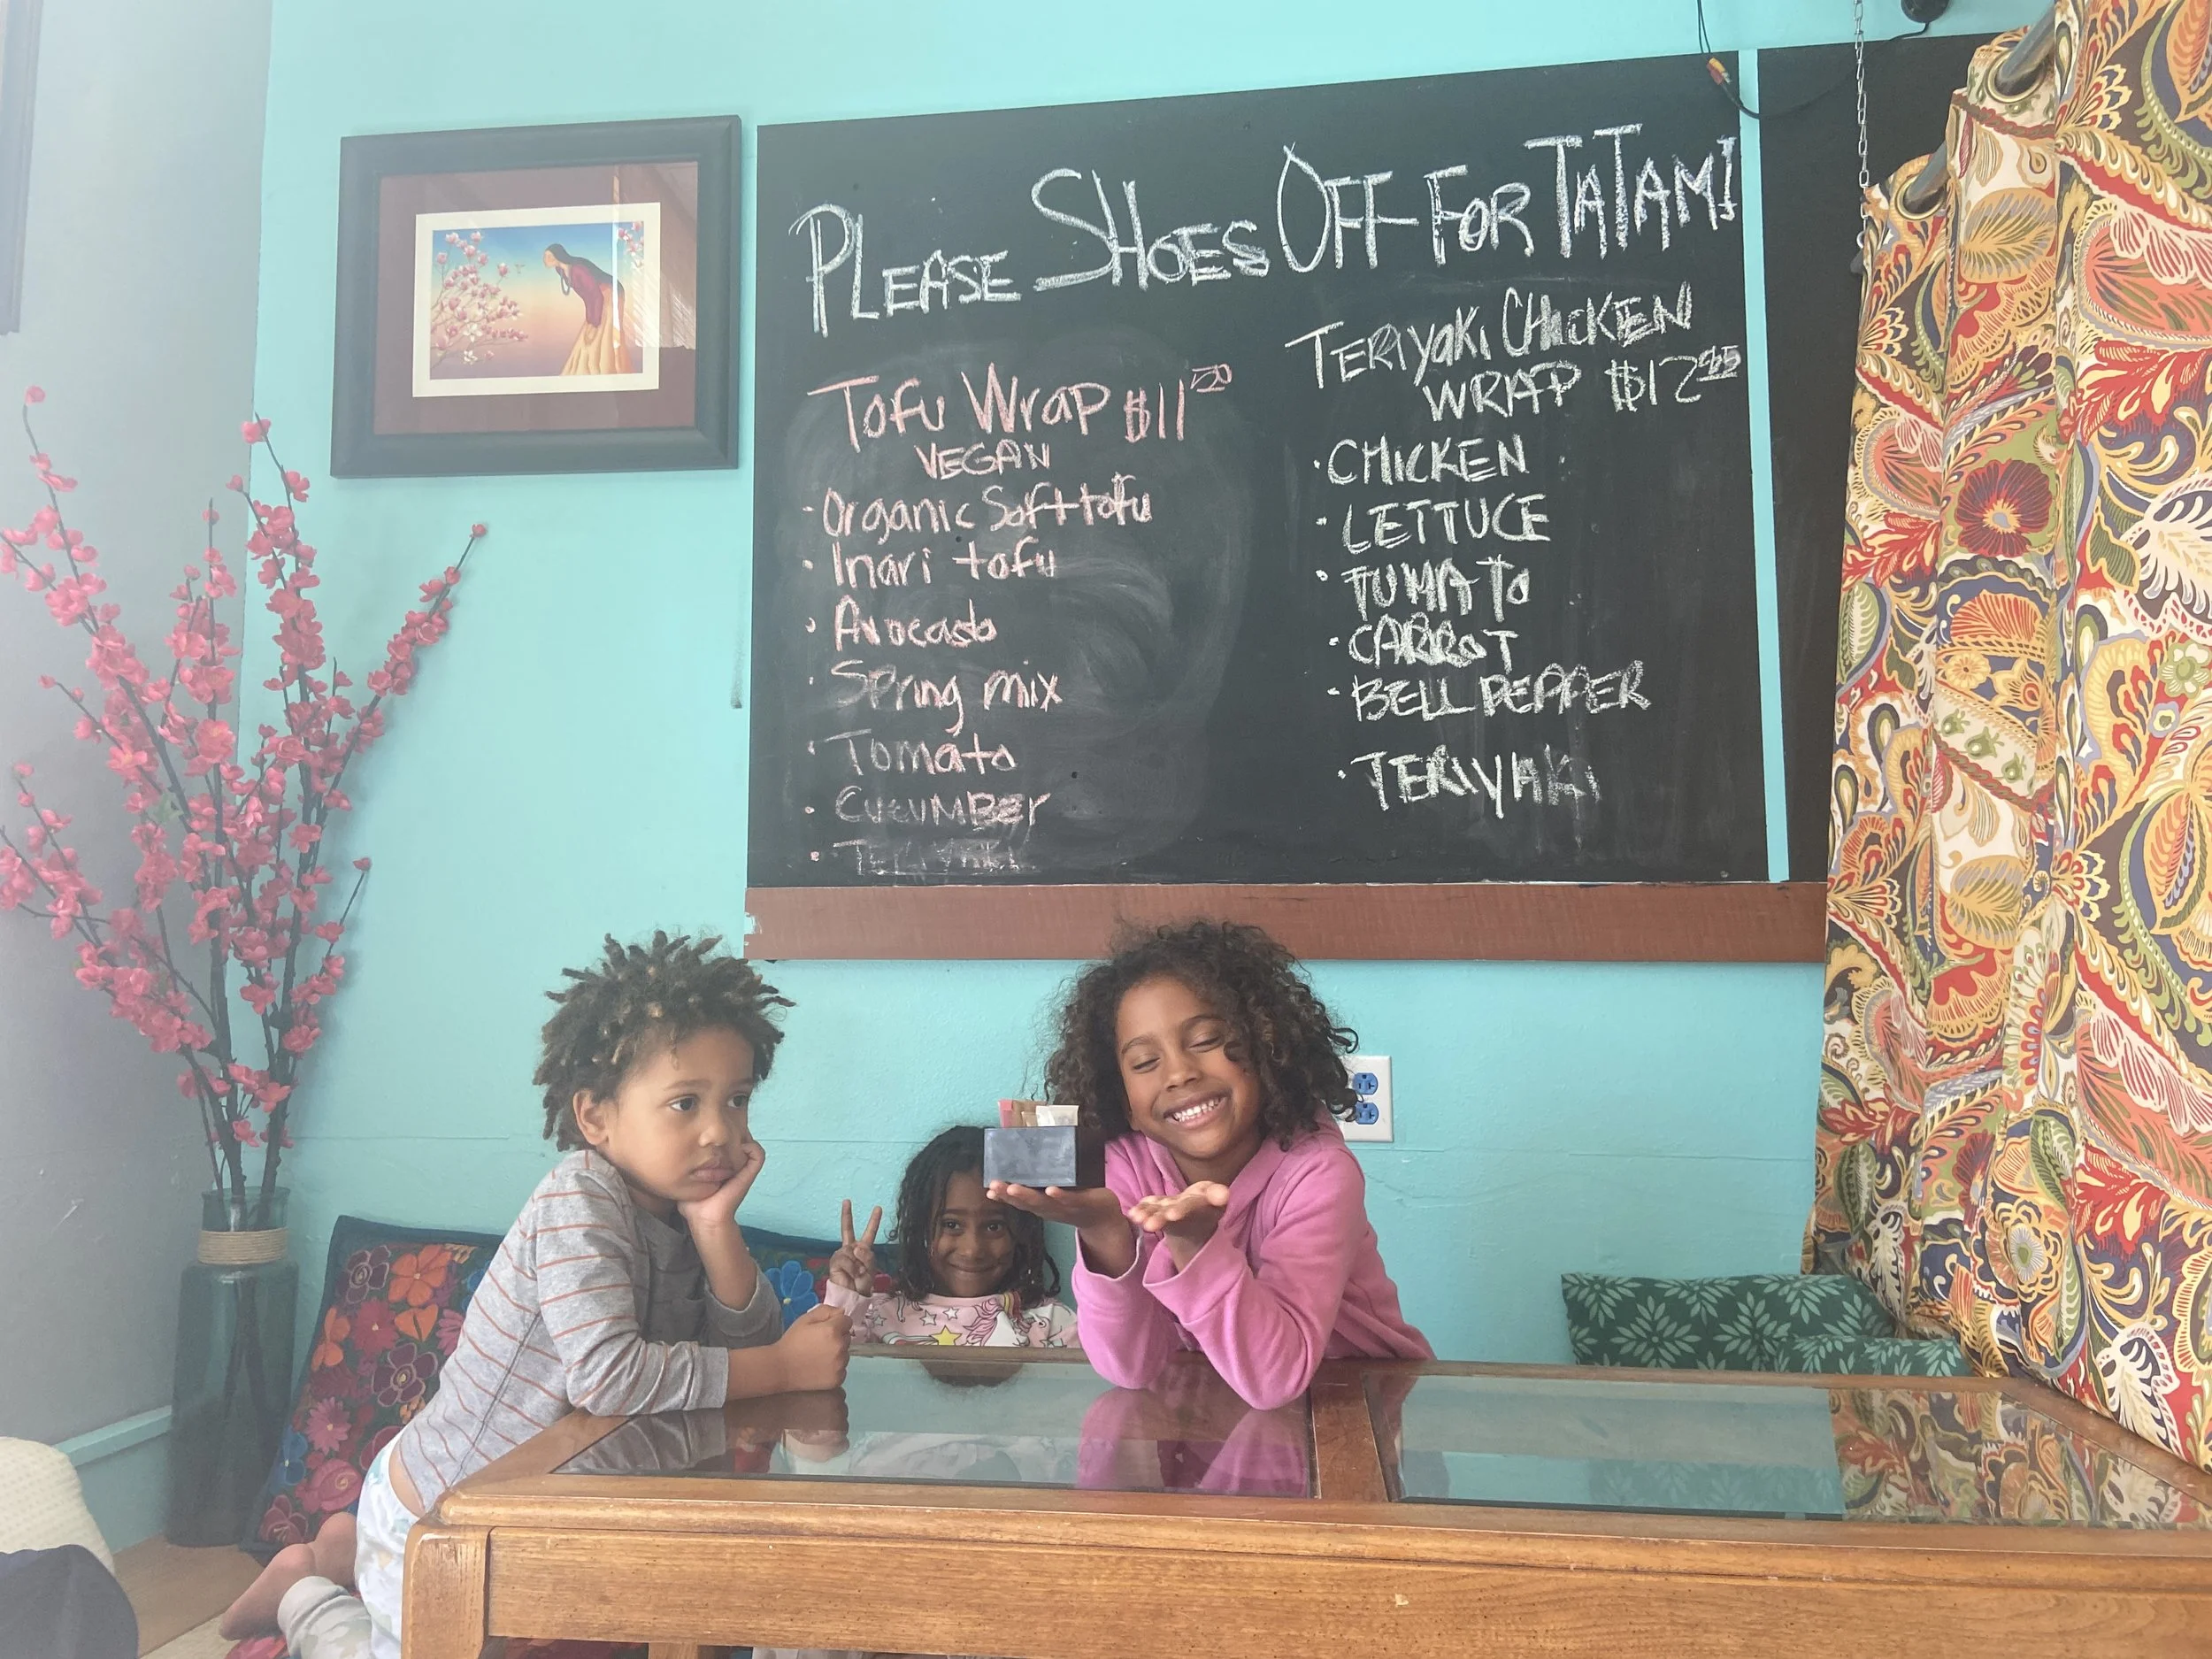 PLEASE SHOES OFF FOR TATAMI
TOFU WRAP $11.50
VEGAN
· Organic Soft tofu
· Inari tofu
· Avocado
· Spring mix
· Tomato
· CUCUMBER
· TERIYAKI
TERIYAKI CHICKEN
WRAP $12
· CHICKEN
· LETTUCE
· TUMATO
· CARROT
· BELL PEPPER
· TERIYAKI